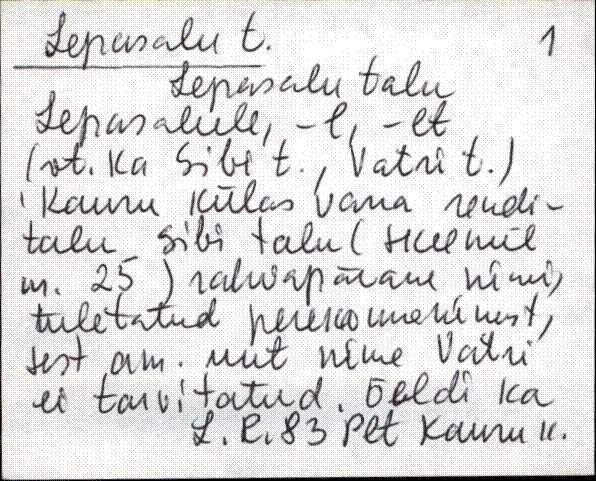 Lepasalu t. 1
Lepasalu talu
Lepasalule, -l, -lt
(vt. ka Sibi t., Vatri t.)
Kauru külas vana rendi-
talu Sibi talu (
nr. 25) rahvapärane nimi,
tuletatud perekonnanimest,
sest am. uut nime Vatri
ei tarvitatud. Öeldi ka
L. R. 83 Plt Kauru k.